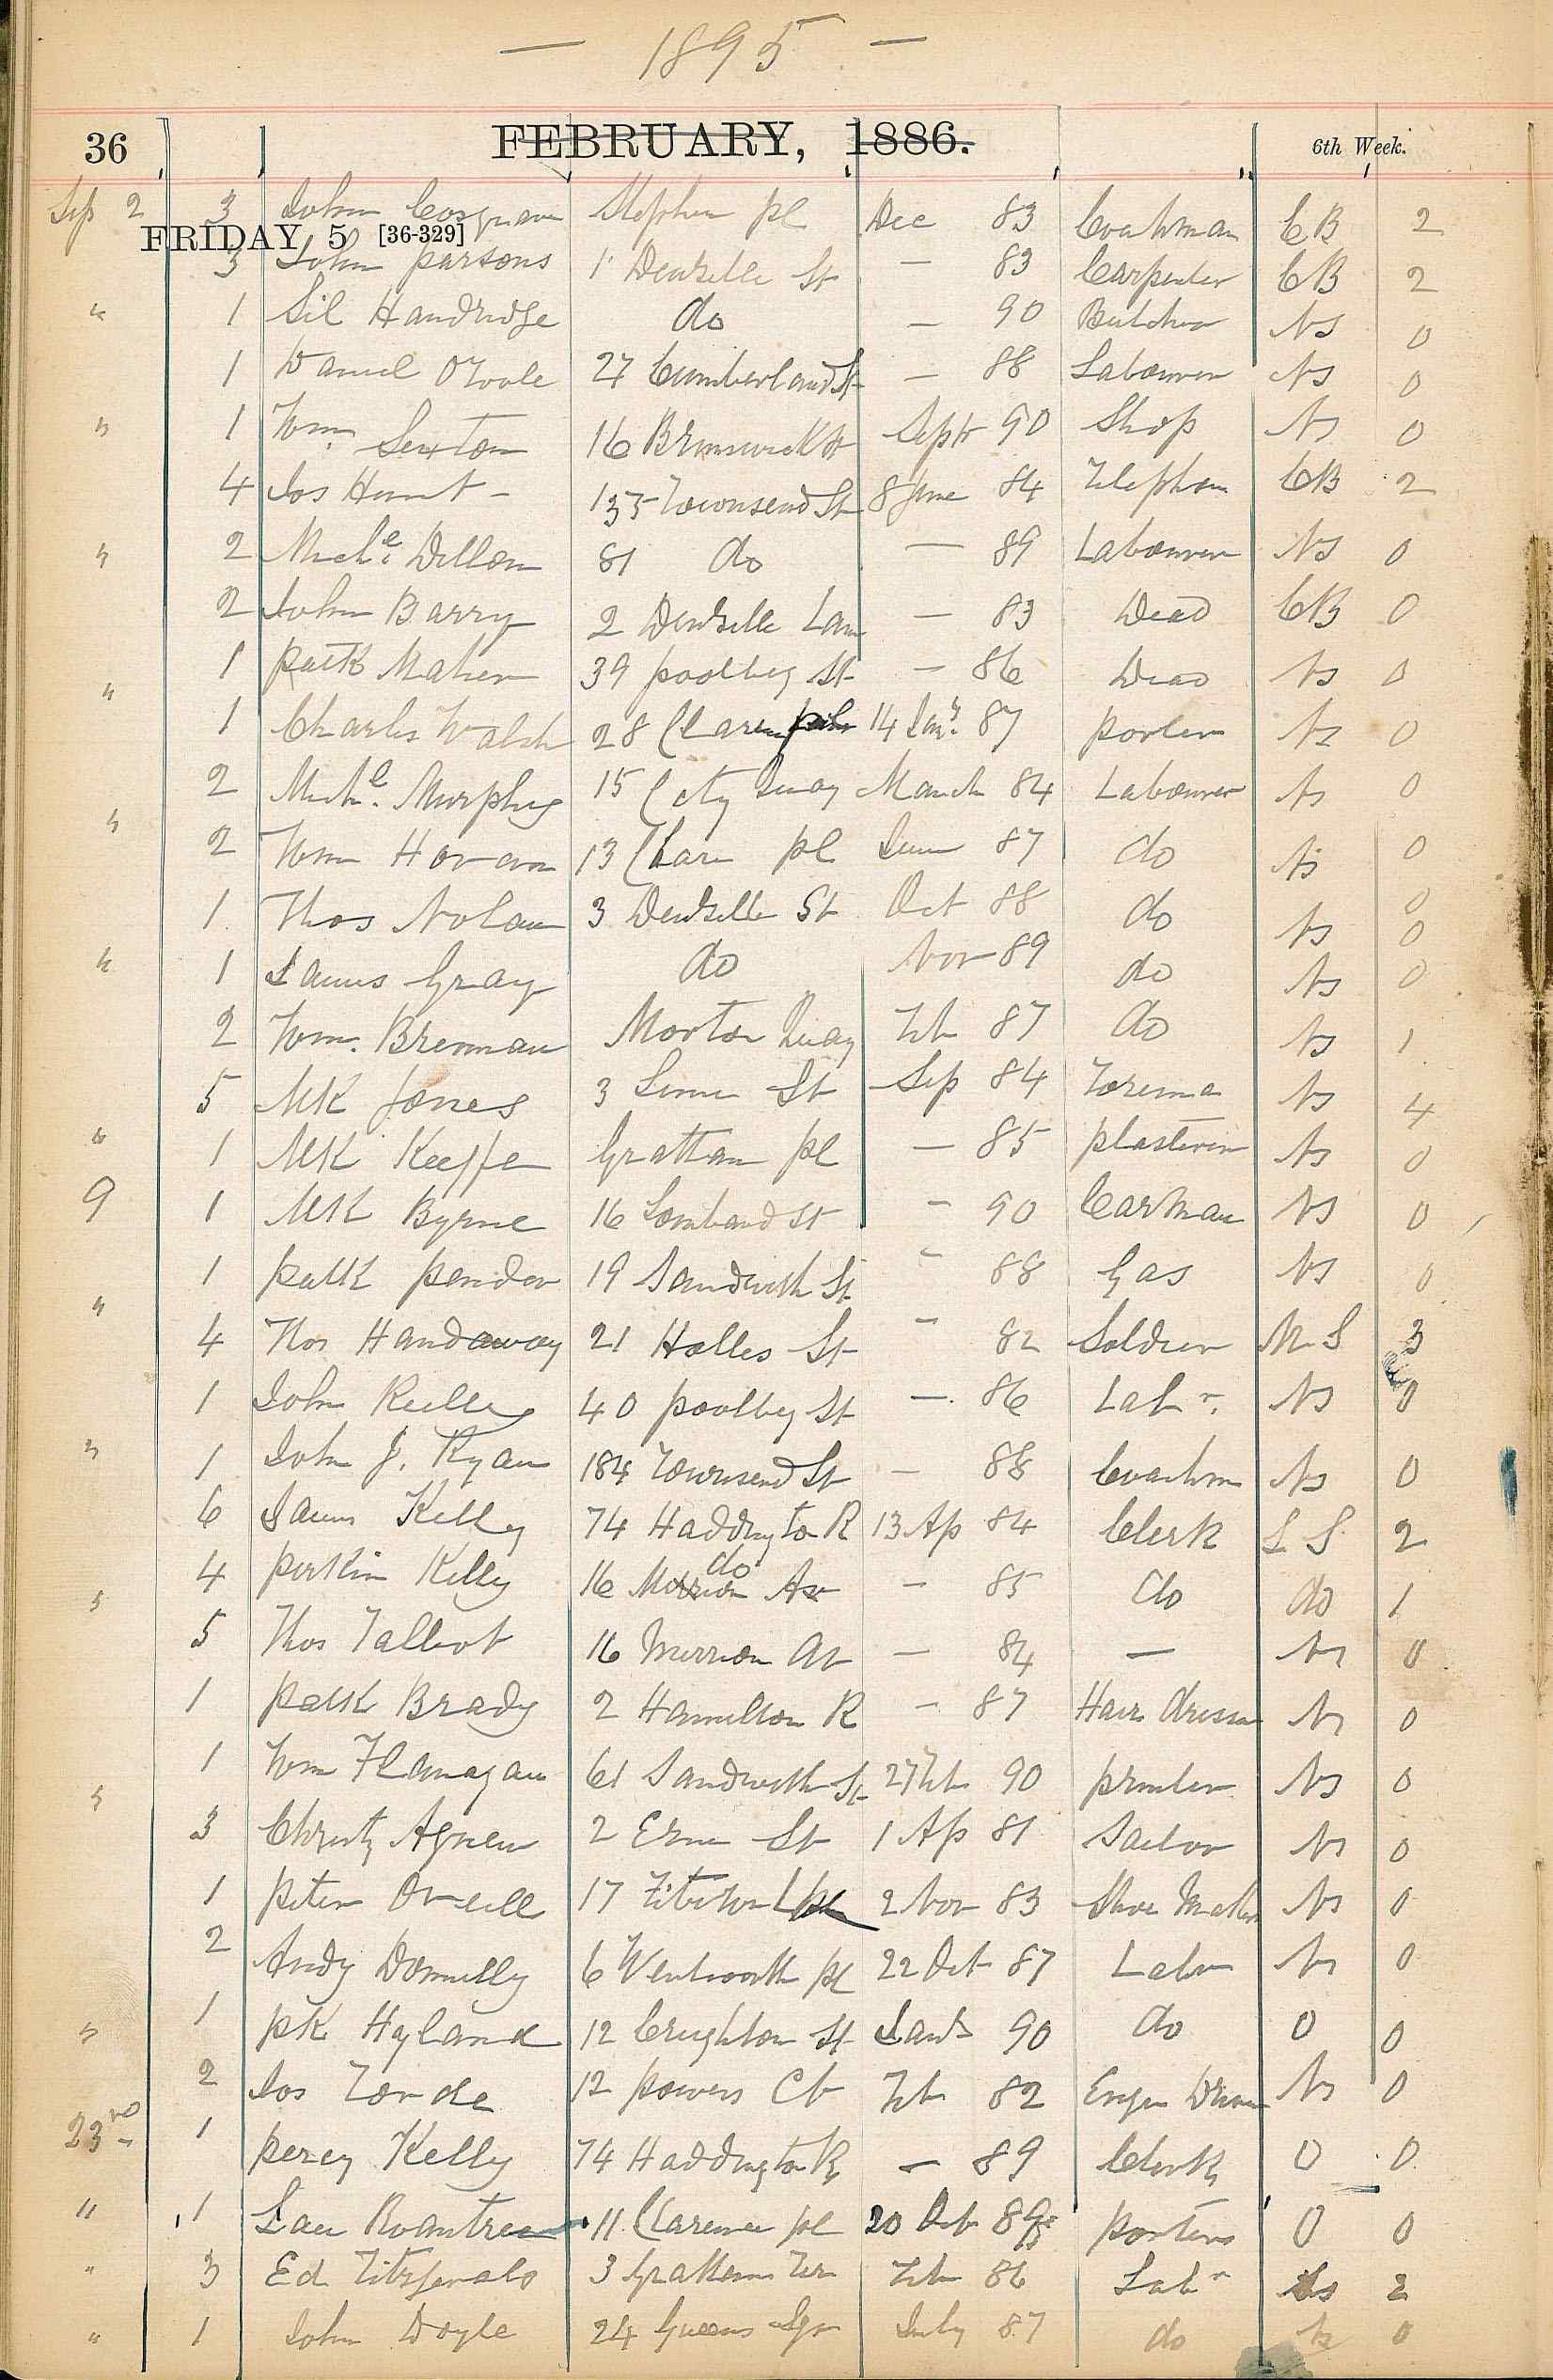 — 1895 —
36 FEBRUARY, 1886. 6th Week.
Sep 2 3 John Cosgrave Stephen pl Dec 83 Coachman CB 2
FRIDAY 5 [36-329]
3 John parsons 1 Denzille St — 83 Carpenter CB 2
" 1 Sil Handridge do — 90 Butcher NS 0
1 Daniel OToole 27 Cumberland St — 88 Labourer NS 0
" 1 Wm Sexton 16 Brunswick St Septr 90 Shop NS 0
4 Jos Hunt - 133 Townsend St 8 June 84 Telephon CB 2
" 2 Michl. Dillon 81 do — 89 Labourer NS 0
2 John Barry 2 Denzille Lan — 83 Dead CB 0
1 patk Maher 39 poolbeg St — 86 Dead NS 0
" 1 Charles Walsh 28 Claren 14 Jany. 87 porter NS 0
2 Michl. Murphy 15 City Quay March 84 Labourer NS 0
" 2 Wm Horan 13 Clare pl June 87 do NS 0
1 Thos Nolan 3 Denzille St Oct 88 do NS 0 0
" 1 James Gray do Nov 89 do NS 0
2 Wm. Brennan Morton Quay Feb 87 do NS 1
5 MK Jones 3 Lime St Sep 84 Foreman NS 4
" 1 MK Keeffe Grattan pl — 85 plasterer NS 0
9 1 MK Byrne 16 Lombard St — 90 Carman NS 0
1 patk pender 19 Sandwith St " 88 Gas NS 0
" 4 Thos Handaway 21 Holles St " 82 Soldier M S 3
1 John Reilly 40 poolbeg St — 86 Labr. NS 0
" 1 John J. Ryan 184 Townsend St — 88 Coachm NS 0
6 James Kelly 74 Haddington R 13 Ap 84 Clerk L S 2
4 perkin Kelly 16 Merrion Av do — 85 do do 1
" 5 Thos Talbot 16 Merrion Av — 84 — NS 0
1 patk Brady 2 Hamilton R — 87 Hair dresser NS 0
1 Wm Flanagan 61 Sandwith St 27 Feb 90 printer NS 0
" 3 Christy Agnew 2 Erne St 1 Ap 81 Sailor NS 0
1 peter Oneill 17 pl 2 Nov 83 Shoe Maker NS 0
2 Andy Donnelly 6 Wentworth pl 22 Oct 87 Labr NS 0
" 1 pK Hyland 12 Creighton St 90 do 0 0
2 Jos Forde 12 powers Ct Feb 82 Engin Driver NS 0
23rd 1 percy Kelly 74 Haddington R — 89 Clerk 0 0
" 1 Lau Roantree 11 Clarence pl 20 Oct 89 porters 0 0
" 3 Ed Fitzgerald 3 Grattan Ter Feb 86 Labr NS 2
" 1 John Doyle 24 Queens Sqr July 87 do NS 0